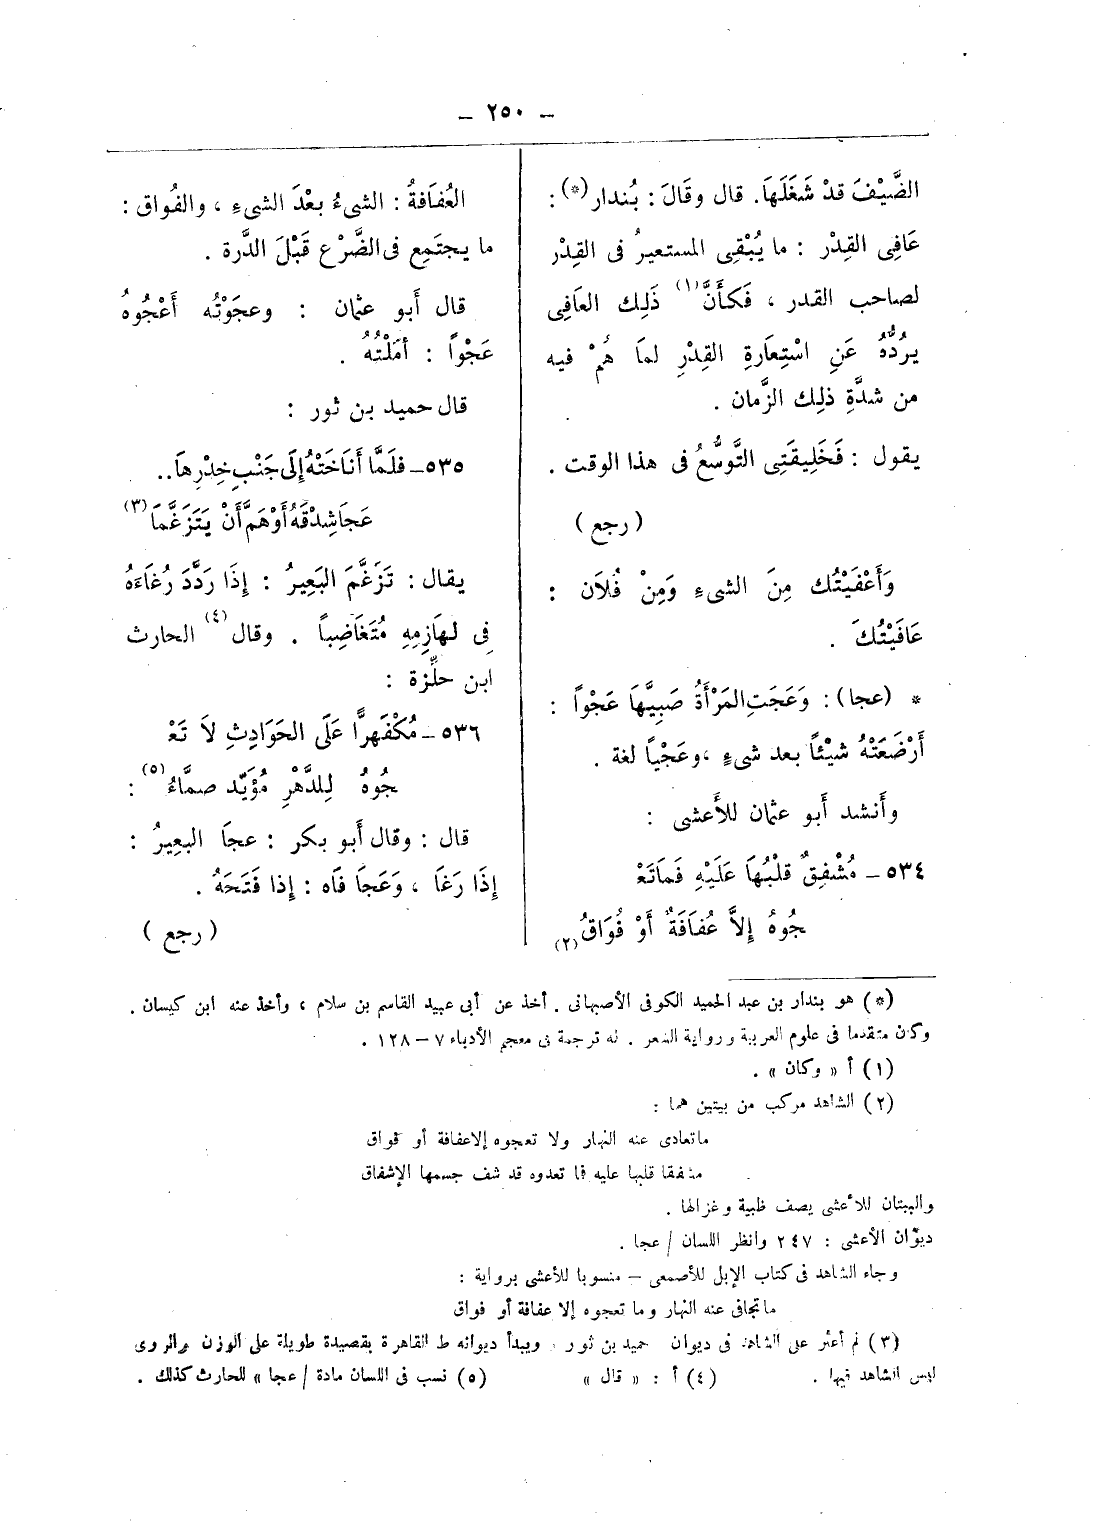 – ٢٥٠ –
الضَّيْفَ قدْ شَغَلَهَا. قال وقَالَ: بُندار(*):
عَافِى القِدْر : ما يُبْقِى المستعيرُ فى القِدْر
لصاحب القدر ، فَكأَنَّ(١) ذَلِك العَافِى
يرُدُّهُ عَنِ اسْتِعَارةِ القِدْرِ لمَا هُمْ فيه
من شدَّةِ ذلِك الزَّمان .
يقول : فَخَلِيقَتِى التَّوسُّعُ فى هذا الوقت .
( رجع )
وَأَعْفَيْتُك مِنَ الشىءِ وَمِنْ فُلَان :
عَافَيْتُكَ .
* (عجا): وَعَجَتِ المَرْأَةُ صَبِيَّهَا عَجْواً :
أَرْضَعَتْهُ شيْئاً بعد شىءٍ ،وعَجْياً لغة .
وأَنشد أَبو عثمان للأَعشى :
٥٣٤ – مُشْفِقٌ قلْبُهَا عَلَيْهِ فَمَاتَعْ
جُوهُ إِلاَّ عُفَافَةٌ أَوْ فُوَاقُ(٢)
العُفَافةُ : الشىءُ بعْدَ الشىءِ ، والفُواق :
ما يجتَمِع فى الضَّرْع قَبْلَ الدَّرة .
قال أَبو عثمان : وعجَوْتُه أَعْجُوهُ
عَجْواً : أَمَلْتُهُ .
قال حميد بن ثور :
٥٣٥– فلَمَّا أَنَاخَتْهُ إِلَى جَنْبِ خِدْرِهَا..
عَجَا شِدْقَهُ أَوْ هَمَّ أَنْ يَتَزَغَّمَا(٣)
يقال : تَزَغَّمَ البَعِيرُ : إِذَا رَدَّدَ رُغَاءَهُ
فِى لهَازِمِهِ مُتَغَاضِباً . وقال(٤) الحارث
ابن حلِّزة :
٥٣٦ – مُكْفَهِرًّا عَلَى الحَوَادِثِ لاَ تَعْ
جُوهُ لِلدَّهْرِ مُؤْيَد صمَّاءُ(٥) :
قال : وقال أَبو بكر : عجَا البعِيرُ :
إِذَا رَغَا ، وَعَجَا فَاه : إِذا فَتَحَهُ .
( رجع )
(*) هو بندار بن عبد الحميد الكوفى الأصبهانى . أخذ عن أبى عبيد القاسم بن سلام ، وأخذ عنه ابن كيسان .
وكان متقدما فى علوم العربية ورواية الشعر . له ترجمة فى معجم الأدباء ٧ – ١٢٨ .
(١) أ « وكان » .
(٢) الشاهد مركب من بيتين هما :
ما تعادى عنه النهار ولا تعجوه إلا عفافة أو فواق
مشفقا قلبها عليه فما تعدوه قد شف جسمها الإشفاق
والبيتان للأعشى يصف ظبية وغزالها .
ديوان الأعشى : ٢٤٧ وانظر اللسان / عجا .
وجاء الشاهد فى كتاب الإبل للأصمعى – منسوبا للأعشى برواية :
ما تجافى عنه النهار وما تعجوه إلا عفافة أو فواق
(٣) لم أعثر على الشاهد فى ديوان حميد بن ثور . ويبدأ ديوانه ط القاهرة بقصيدة طويلة على الوزن والروى
ليس الشاهد فيها . (٤) أ : « قال » (٥) نسب فى اللسان مادة / عجا » للحارث كذلك .